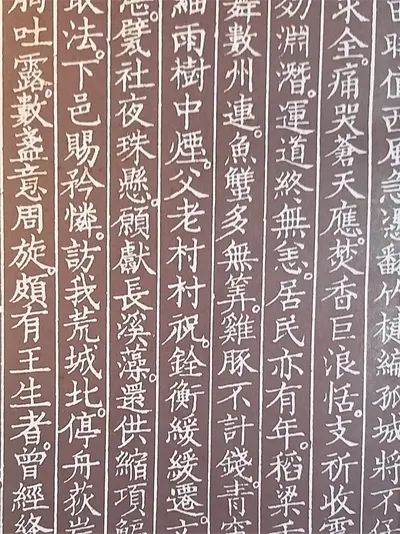 時值西風急憑翻竹楗編孤城將不
求全痛哭蒼天應焚香巨浪恬支祈收
淵潛運道終無恙居民亦有年稻粱
舞數州連魚蟹多無筭雞豚不計錢青
細雨樹中煙父老村村祝銓衡緩緩遷
甓社夜珠懸願獻長溪藻還供縮項
取法下邑賜矜憐訪我荒城北停舟荻
胸吐露數盞意周旋頗有王生者曾經